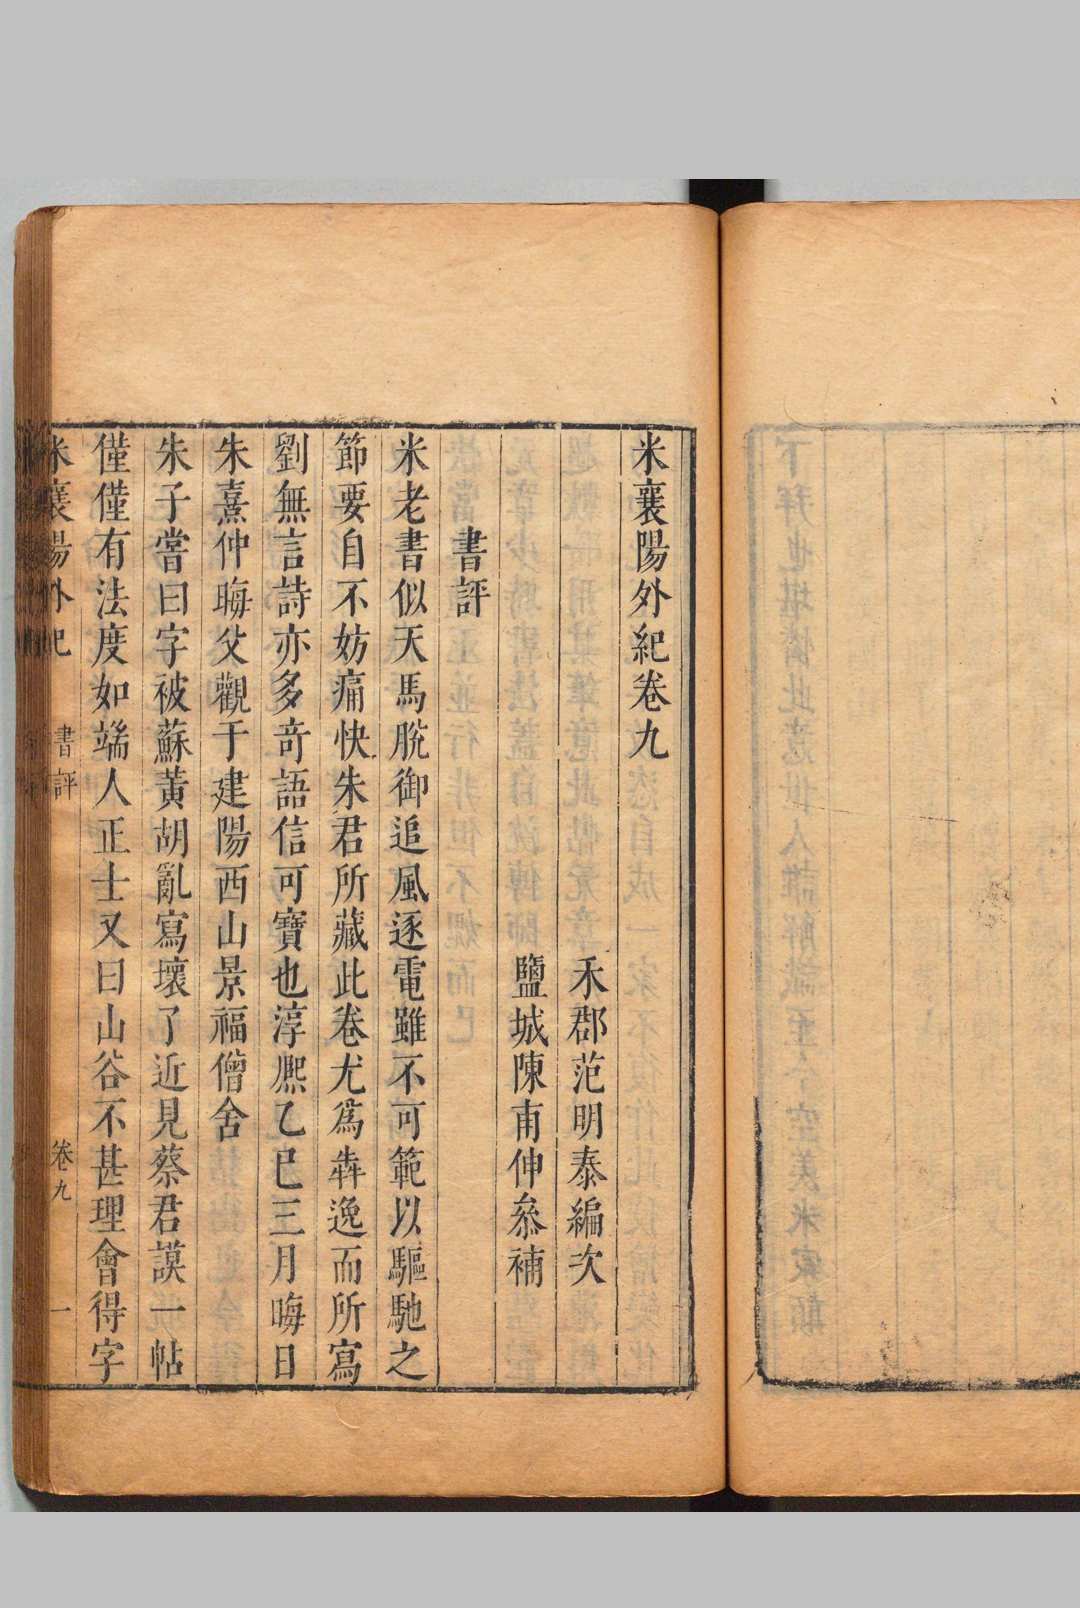 米襄陽外紀卷九
禾郡范明泰編次
鹽城陳甫伸叅補
書評
米老書似天馬脫御追風逐電雖不可範以驅馳之
節要自不妨痛快朱君所藏此卷尤爲犇逸而所寫
劉無言詩亦多奇語信可寶也淳熈乙巳三月晦日
朱熹仲晦父觀于建陽西山景福僧舍
朱子嘗曰字被蘇黃胡亂寫壞了近見蔡君謨一帖
僅僅有法度如端人正士又曰山谷不甚理會得字
米襄陽外紀 書評 卷九 一